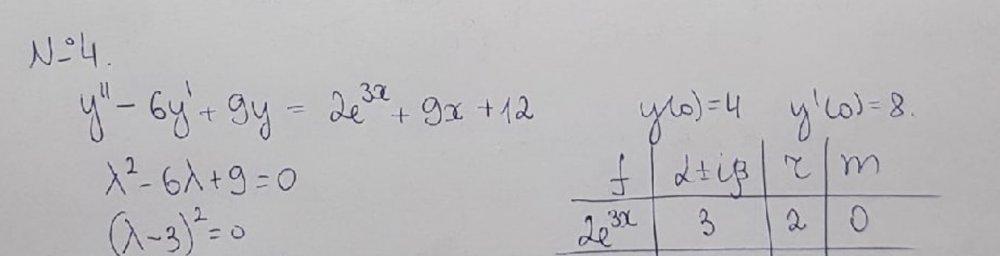 №4.
y'' - 6y' + 9y = 2e^{3x} + 9x + 12 y(0)=4 y'(0)=8.
λ² - 6λ + 9 = 0
f | α±iβ | r | m
(λ-3)² = 0
2e^{3x} | 3 | 2 | 0